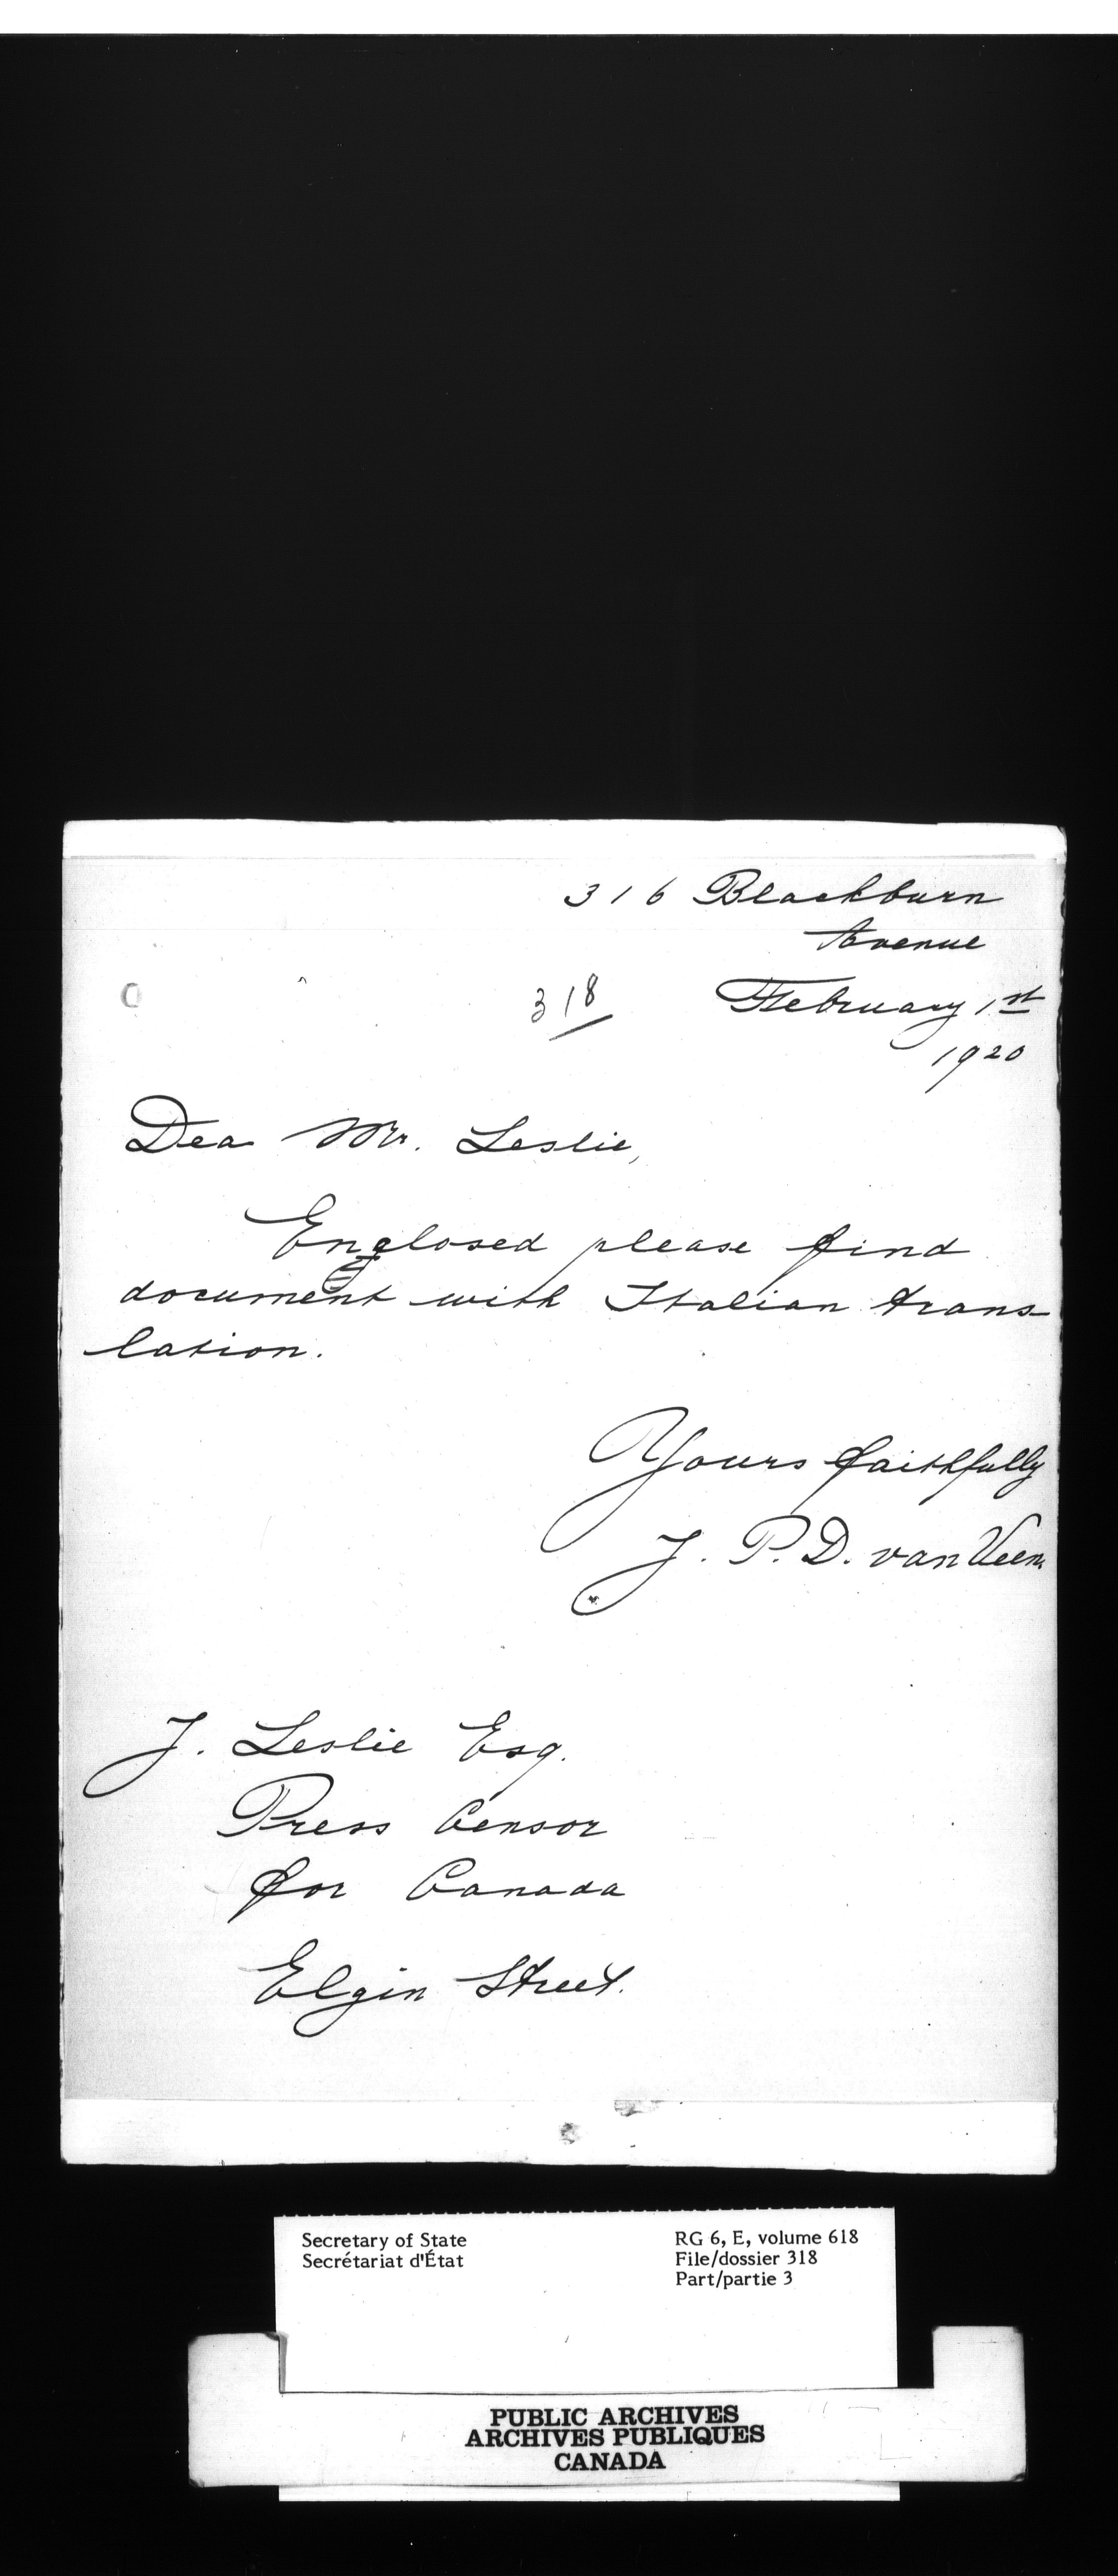 316 Blackburn
Avenue
318
February 1st
1920
Dea Mr. Leslie,
Enclosed please find
document with Italian trans-
lation.
Yours faithfully
J. P. D. van Veen.
J. Leslie Esq.
Press Censor
for Canada
Elgin Street.
Secretary of State
Secrétariat d'État
RG 6, E, volume 618
File/dossier 318
Part/partie 3
PUBLIC ARCHIVES
ARCHIVES PUBLIQUES
CANADA